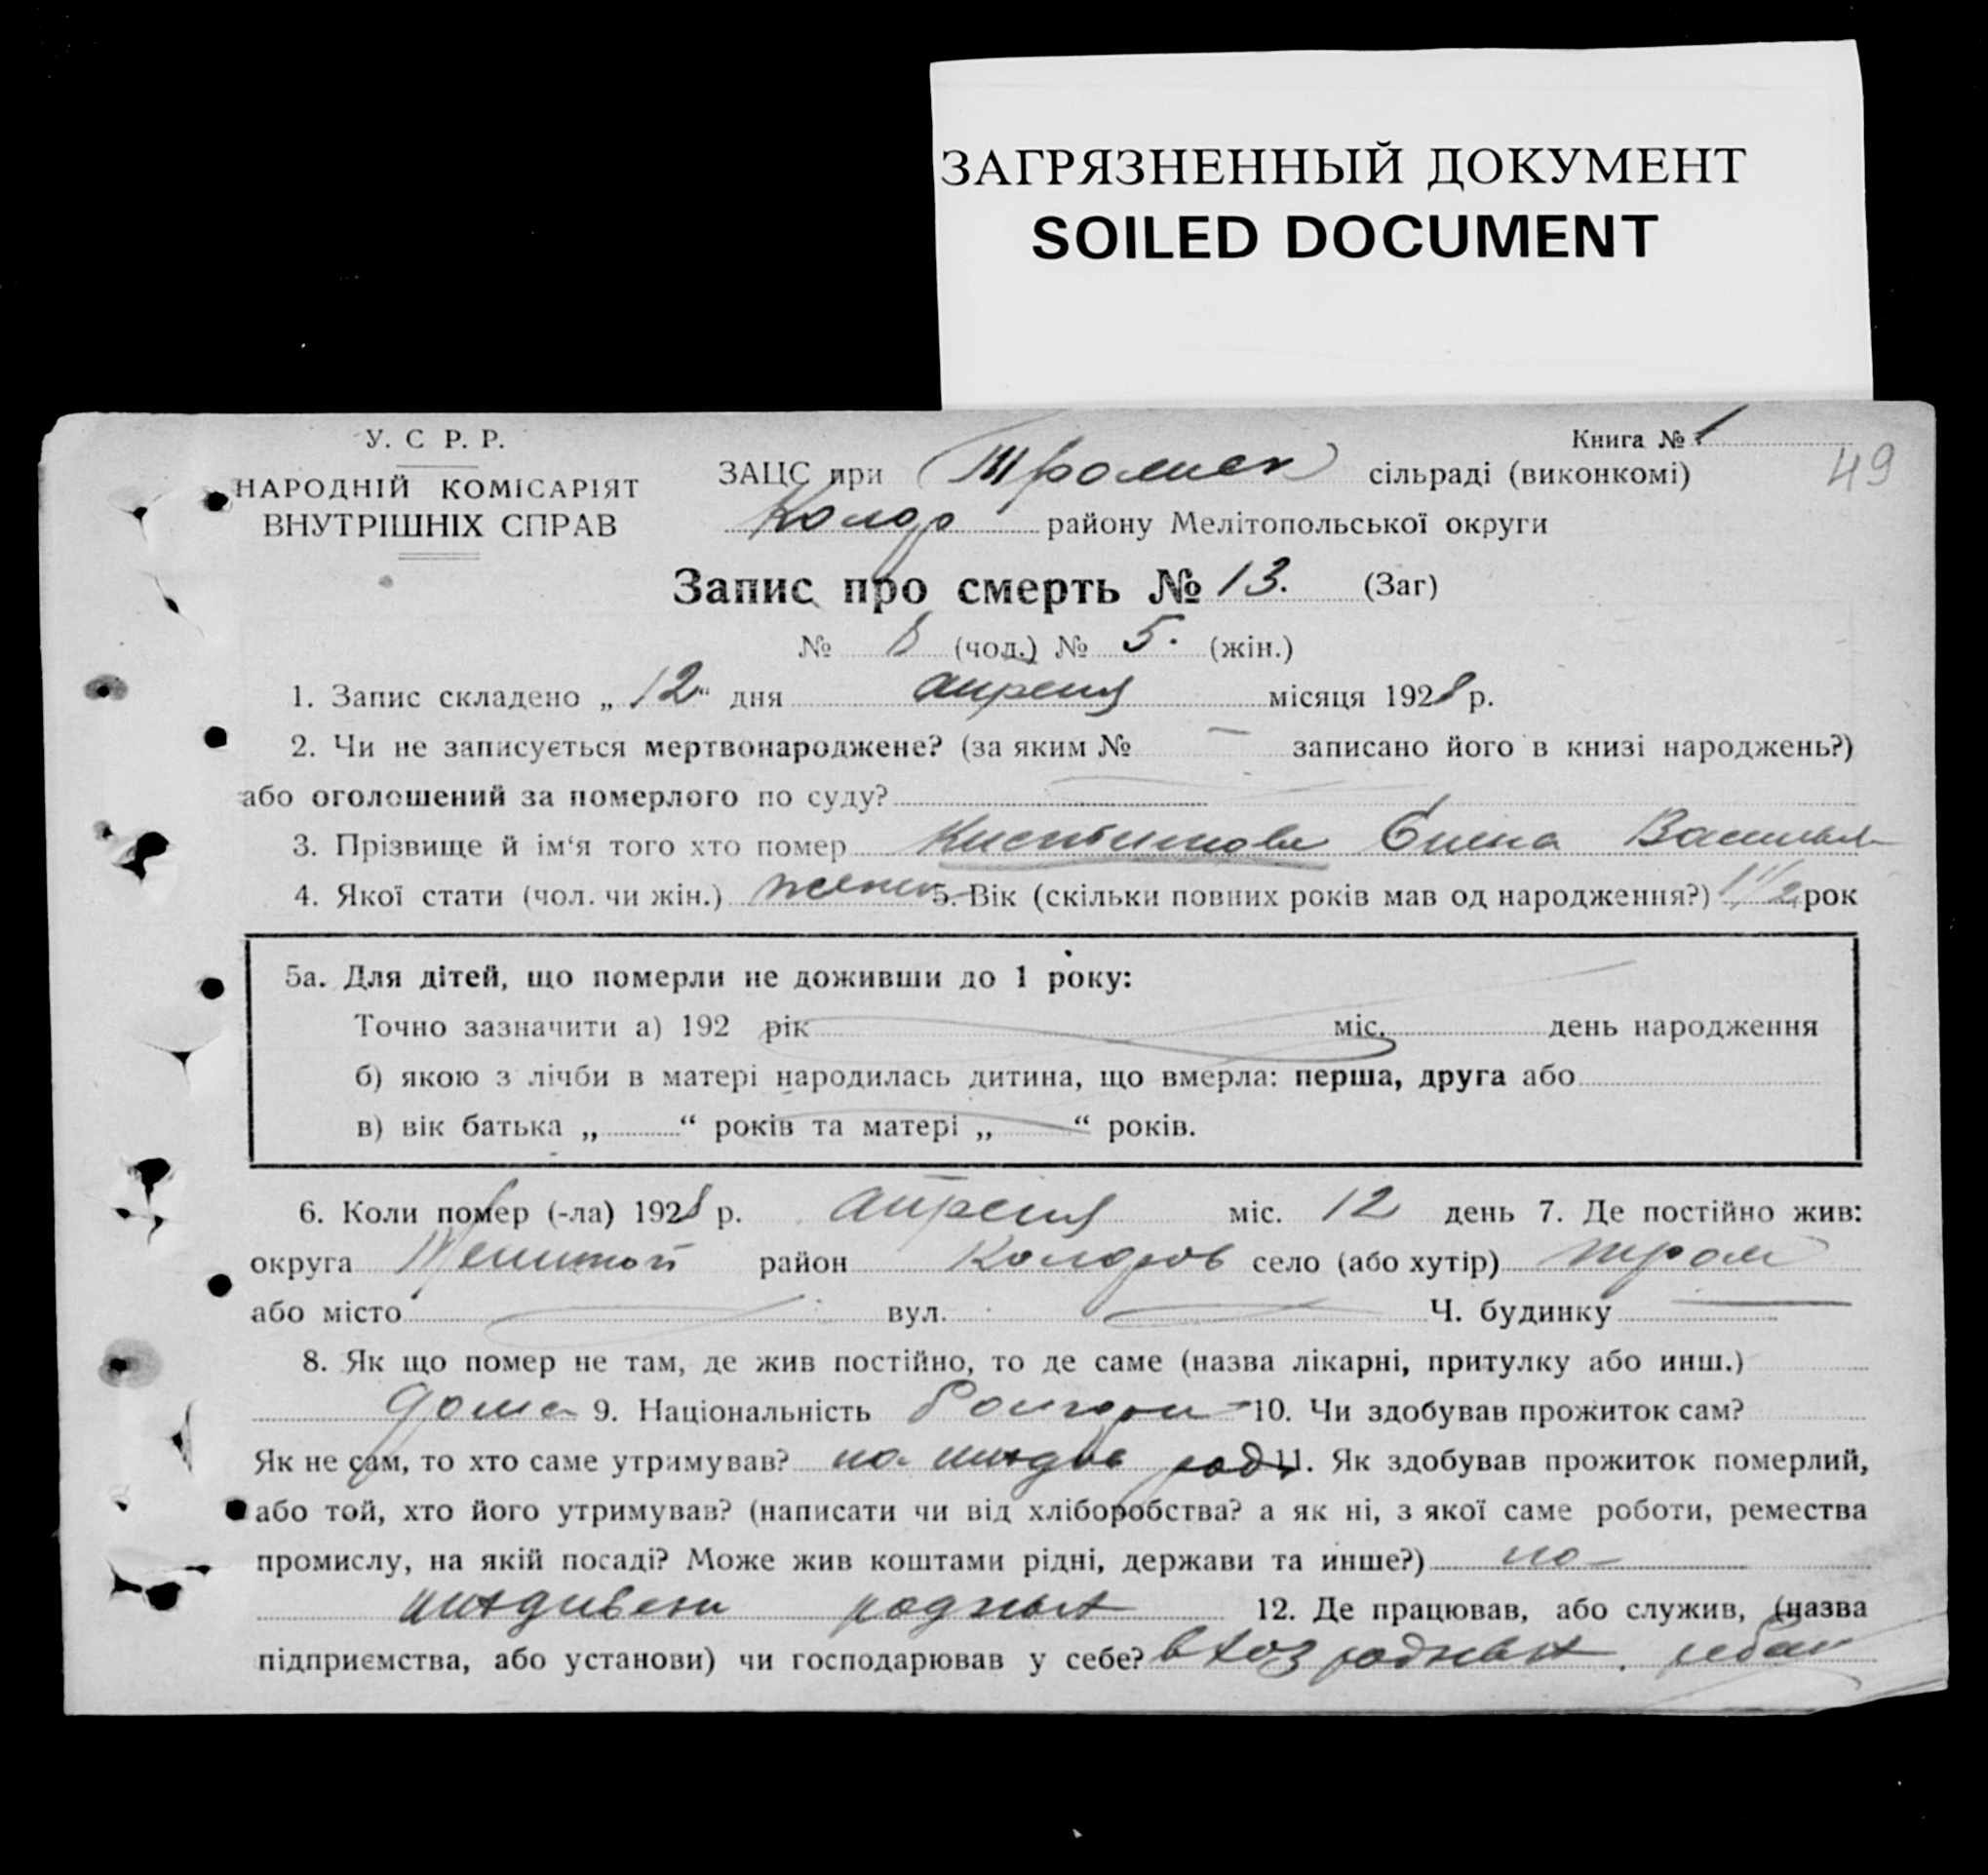 ЗАГРЯЗНЕННЫЙ ДОКУМЕНТ
SOILED DOCUMENT
У. С Р. Р.
НАРОДНІЙ КОМІСАРІЯТ
ВНУТРІШНІХ СПРАВ
Книга № 1
49
ЗАЦС при сільраді (виконкомі)
Колор району Мелітопольської округи
Запис про смерть № 13. (Заг)
№ 8 (чол.) № 5. (жін.)
1. Запис складено „ 12 “ дня апреля місяця 1928 р.
2. Чи не записується мертвонароджене? (за яким № — записано його в книзі народжень?)
або оголошений за померлого по суду?
3. Прізвище й ім‘я того хто помер Елена
4. Якої стати (чол. чи жін.) женск 5. Вік (скільки повних років мав од народження?) 1 1/2 рок
5а. Для дітей, що померли не доживши до 1 року:
Точно зазначити а) 192 рік міс. день народження
б) якою з лічби в матері народилась дитина, що вмерла: перша, друга або
в) вік батька „ “ років та матері „ “ років.
6. Коли помер (-ла) 1928 р. апреля міс. 12 день 7. Де постійно жив:
округа Мелитоп район Коларов село (або хутір) Тром
або місто вул. Ч. будинку
8. Як що помер не там, де жив постійно, то де саме (назва лікарні, притулку або инш.)
дома 9. Національність болгарк 10. Чи здобував прожиток сам?
Як не сам, то хто саме утримував? на иждив род 11. Як здобував прожиток померлий,
або той, хто його утримував? (написати чи від хліборобства? а як ні, з якої саме роботи, ремества
промислу, на якій посаді? Може жив коштами рідні, держави та инше?) на
иждивени родных 12. Де працював, або служив, (назва
підприємства, або установи) чи господарював у себе? в хоз родных.